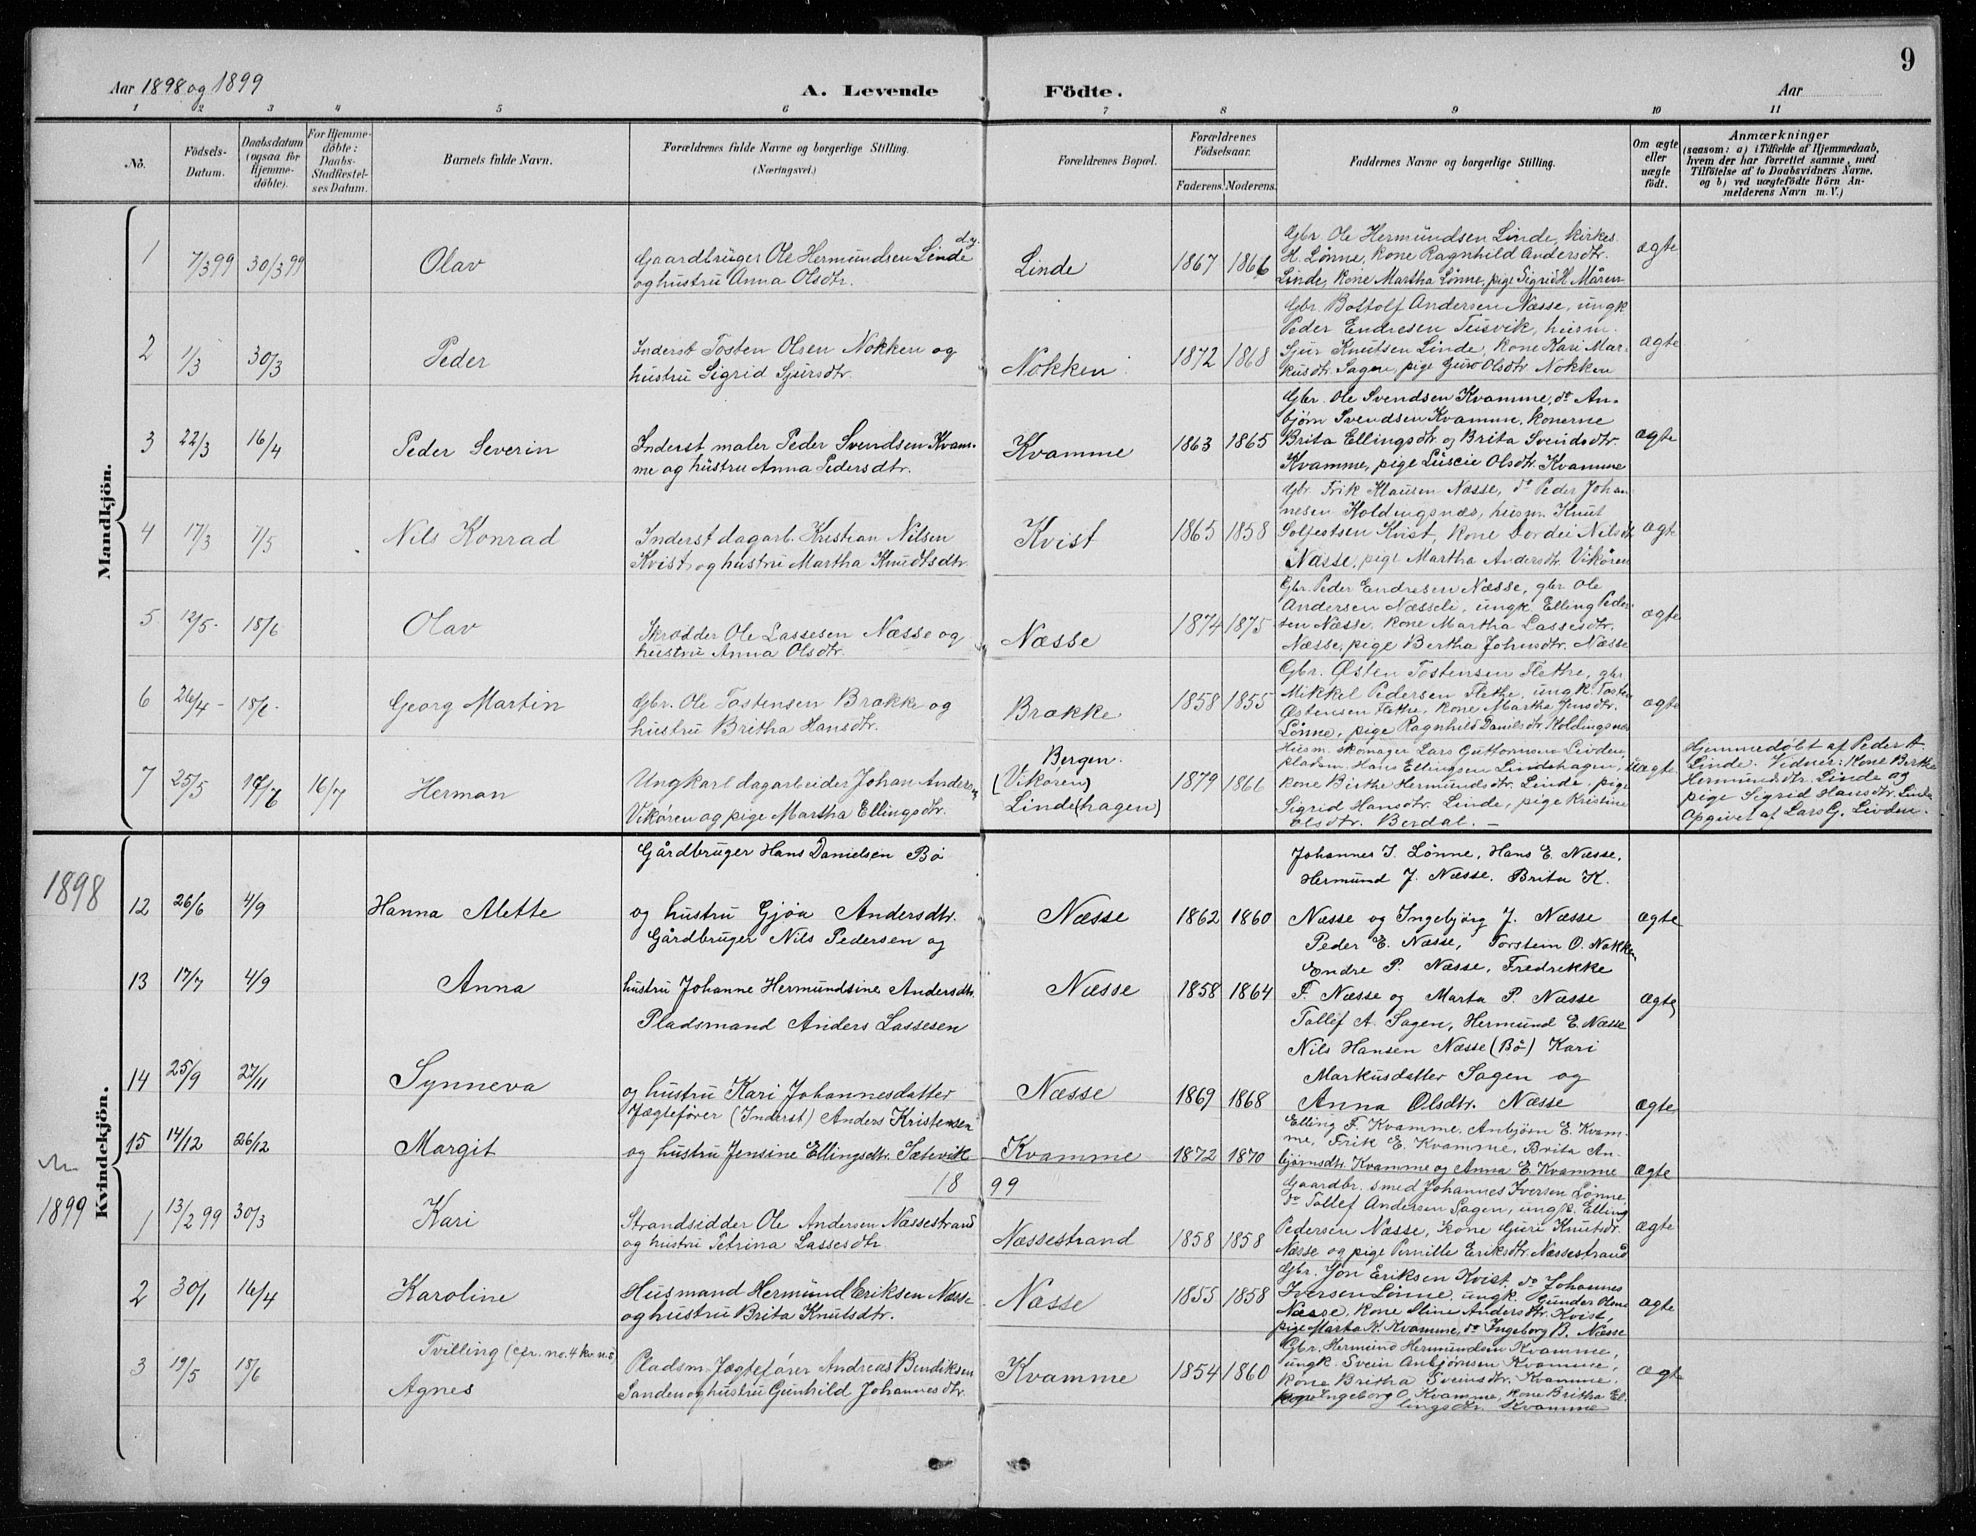 Aar 1898 og 1899
A. Levende Födte.
Aar
9
1 2 3 4 5 6 7 8 9 10 11
No.
Födsels-Datum.
Daabsdatum (ogsaa for Hjemmedöbte).
For Hjemmedöbte: Daabs-Stadfestelses Datum.
Barnets fulde Navn.
Forældrenes fulde Navne og borgerlige Stilling. (Næringsvei.)
Forældrenes Bopæl.
Forældrenes Födselsaar.
Faderens. Moderens.
Faddernes Navne og borgerlige Stilling.
Om ægte eller uægte födt.
Anmærkninger
(saasom: a) i Tilfælde af Hjemmedaab, hvem der har forrettet samme, med Tilföielse af to Daabsvidners Navne, og b) ved uægtefödte Börn Anmelderens Navn m. V.)
Mandkjön.
1 7/3 99 30/3 99 Olav
Gaardbruger Ole Hermundsen Linde
og hustru Anna Olsdtr.
Linde 1867 1866
Gbr. Ole Hermundsen Linde, kirkes.
H. Lønne, kone Ragnhild Andersdtr.
Linde, kone Martha Lønne, pige Sigrid H. Måren
ægte
2 1/3 30/3 Peder
Inderst Tosten Olsen Nokken og
hustru Sigrid Sjursdtr.
Nokken 1872 1868
Gbr. Bottolf Andersen Næsse, ungk.
Peder Endresen Teisvik, husm.
Sjur Knutsen Linde, kone Kari Mar-
kusdtr. Sagen, pige Guro Olsdtr. Nokken
ægte
3 22/3 16/4 Peder Severin
Inderst maler Peder Svendsen Kvam-
me og hustru Anna Pedersdtr.
Kvamme 1863 1865
Gbr. Ole Svendsen Kvamme, do An-
bjørn Svendsen Kvamme, konerne
Brita Ellingsdtr. og Brita Svendsdtr.
Kvamme, pige Luscie Olsdtr. Kvamme
ægte
4 17/3 7/5 Nils Konrad
Inderst dagarb. Kristian Nilsen
Kvist og hustru Martha Knudtsdtr.
Kvist 1865 1858
Gbr. Frik Klausen Næsse, do Peder Johan-
nesen Holdingsnæs, husm. Knut
Solfestsen Kvist, kone Dordei Nilsdtr
Næsse, pige Martha Andersdtr. Vikøren
ægte
5 12/5 18/6 Olav
Skrædder Ole Lassesen Næsse og
hustru Anna Olsdtr.
Næsse 1874 1875
Gbr. Peder Endresen Næsse, gbr. Ole
Andersen Næsseli, ungk. Elling Peder-
sen Næsse, kone Martha Lassesdtr.
Næsse, pige Bertha Johnsdtr. Næsse
ægte
6 26/4 18/6 Georg Martin
Gbr. Ole Tostensen Brække og
hustru Britha Hansdtr.
Brække 1858 1855
Gbr. Østen Tostensen Flethe, gbr.
Mikkel Pedersen Flethe, ungk. Tosten
Østensen Flethe, kone Martha Jensdtr.
Lønne, pige Ragnhild Danielsdtr. Holdingsnæs
ægte
7 25/5 16/7 Herman
Ungkarl dagarbeider Johan Anders
Vikøren og pige Martha Ellingsdtr.
Bergen.
(Vikøren)
Linde(hagen) 1879 1866
Husm. skomager Lars Guttormsen Livden
pladsm. Hans Ellingsen Lindehagen,
kone Birthe Hermundsdtr. Linde, pige
Sigrid Hansdtr. Linde, pige Kristine
Olsdtr. Berdal. –
uægte
Hjemmedöbt af Peder A.
Linde. Vidner: Kone Birthe
Hermundsdtr. Linde og
pige Sigrid Hansdtr. Linde
Opgivet af Lars G. Livden.
Kvindekjön.
1898
12 26/6 4/9 Hanna Alette
Gårdbruger Hans Danielsen Bø
og hustru Gjøa Andersdtr.
Næsse 1862 1860
Johannes I. Lønne, Hans E. Næsse,
Hermund J. Næsse. Brita K.
Næsse og Ingebjørg J. Næsse
ægte
13 17/7 4/9 Anna
Gårdbruger Nils Pedersen og
hustru Johanne Hermundsine Andersdtr.
Næsse 1858 1864
Peder E. Næsse, Torstein O. Nokken
Endre P. Næsse, Fredrekke
F. Næsse og Marta P. Næsse
ægte
14 25/9 27/11 Synneva
Pladsmand Anders Lassesen
og hustru Kari Johannesdatter
Næsse 1869 1868
Tollef A. Sagen, Hermund E. Næsse
Nils Hansen Næsse (Bø) Kari
Markusdatter Sagen og
Anna Olsdtr. Næsse
ægte
15 14/12 26/12 Margit
Jægtefører (Inderst) Anders Kristensen
og hustru Jensine Ellingsdtr. Sætevik
Kvamme 1872 1870
Elling F. Kvamme, Anbjørn E. Kvam-
me, Frik E. Kvamme, Brita An-
bjørnsdtr. Kvamme og Anna E. Kvamme
ægte
1899
1899
1 13/2 99 30/3 Kari
Strandsidder Ole Andersen Næssestrand
og hustru Petrina Lassesdtr.
Næssestrand 1858 1858
Gaardbr. smed Johannes Iversen Lønne,
do Tollef Andersen Sagen, ungk. Elling
Pedersen Næsse, kone Guri Knutsdtr.
Næsse og pige Pernille Eriksdtr. Næssestrand
ægte
2 30/1 16/4 Karoline
Husmand Hermund Eriksen Næsse
og hustru Brita Knutsdtr.
Næsse 1855 1858
Gbr. Jon Eriksen Kvist, do Johannes
Iversen Lønne, ungk. Gunder Olsen
Næsse, kone Stine Andersdtr. Kvist,
pige Marta K. Kvamme, do Ingeborg B. Næsse
ægte
3 19/5 18/6
Tvilling (cfr. no. 4 kv. n.s.)
Agnes
Pladsm. Jægtefører Andreas Bendiksen
Sanden og hustru Gunhild Johannesdtr.
Kvamme 1854 1860
Gbr. Hermund Hermundsen Kvamme,
ungk. Svein Anbjørnsen Kvamme,
kone Britha Sveinsdtr. Kvamme,
Ingeborg O. Kvamme, kone Britha El-
lingsdtr. Kvamme
ægte